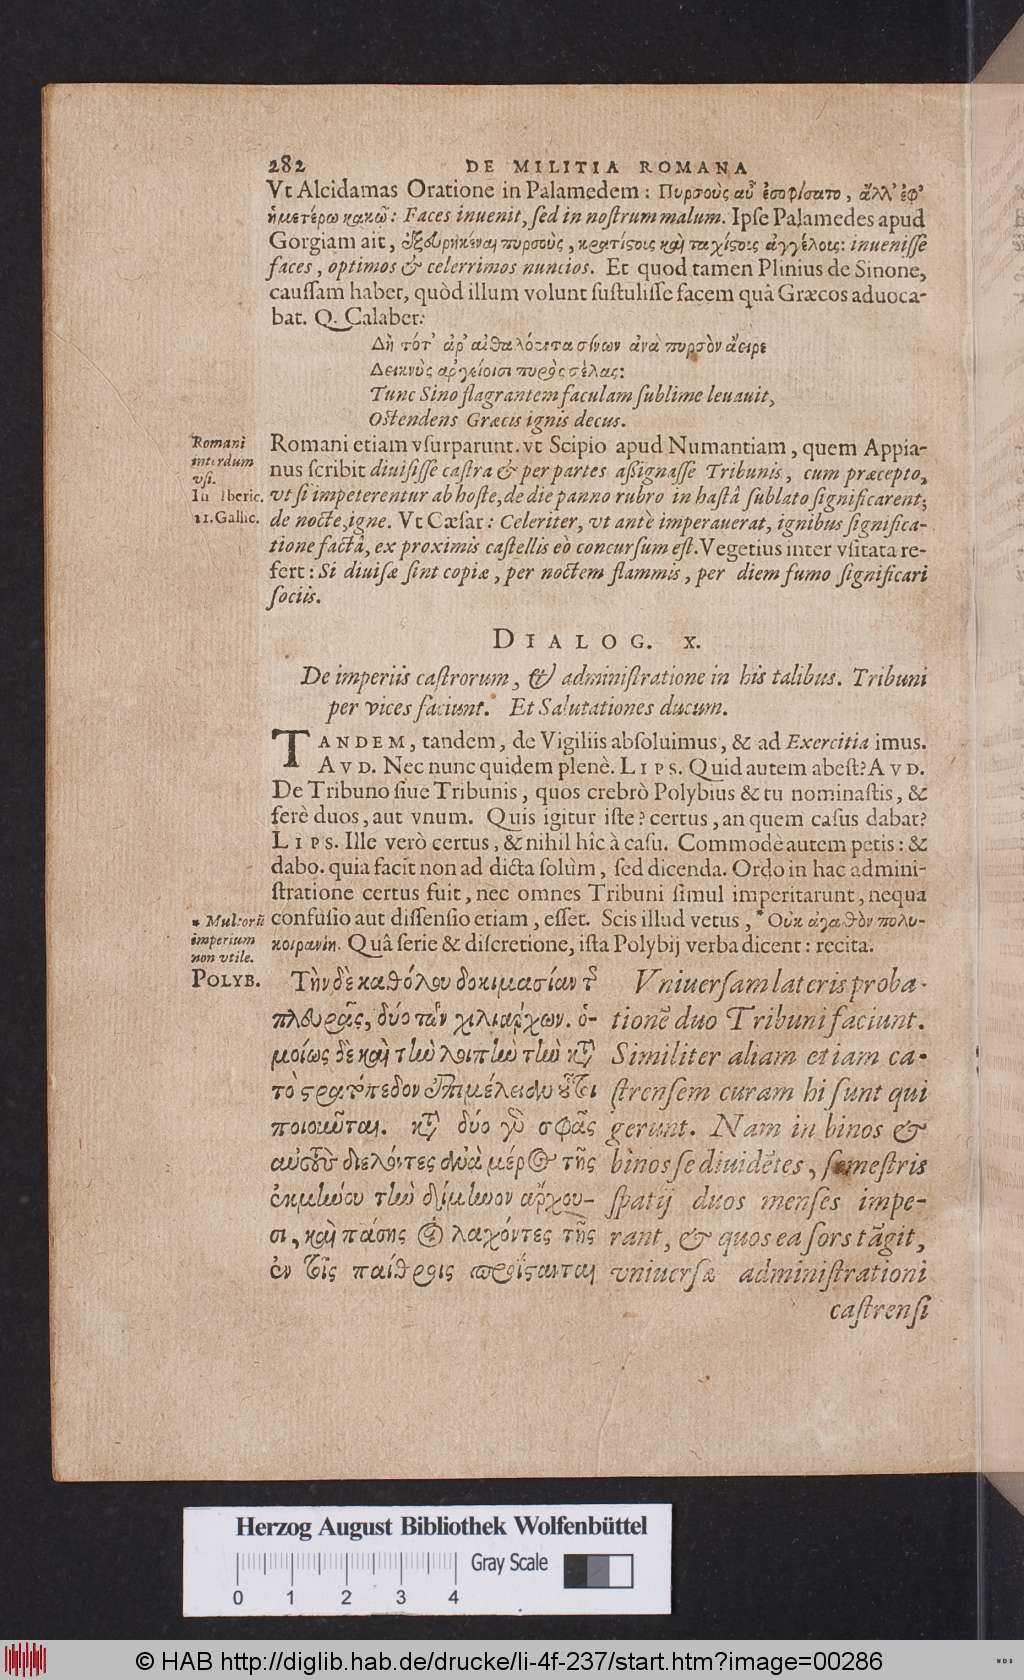 282 DE MILITIA ROMANA
Vt Alcidamas Oratione in Palamedem : Πυρσοὺς αὖ ἐσοφίσατο, ἀλλ' ἐφ'
ἡμετέρω κακῷ: Faces inuenit, ſed in noſtrum malum. Ipſe Palamedes apud
Gorgiam ait, ἐξευρηκέναι πυρσοὺς, κρατίςοις καὶ ταχίςοις ἀγγέλοις: inueniſſe
faces, optimos & celerrimos nuncios. Et quod tamen Plinius de Sinone,
cauſſam habet, quòd illum volunt ſuſtuliſſe facem quâ Græcos aduoca-
bat. Q. Calaber:
Δὴ τότ' ἀρ' αἰθαλόεντα σίνων ἀνὰ πυρσὸν ἄειρε
Δεικνὺς ἀργείοισι πυρὸς σέλας:
Tunc Sino flagrantem faculam ſublime leuauit,
Oſtendens Græcis ignis decus.
Romani interdum vſi.
In Iberic.
11. Gallic.
Romani etiam vſurparunt. vt Scipio apud Numantiam, quem Appia-
nus ſcribit diuiſiſſe caſtra & per partes aßignaſſe Tribunis, cum præcepto,
vt ſi impeterentur ab hoſte, de die panno rubro in haſtâ ſublato ſignificarent;
de nocte, igne. Vt Cæſar: Celeriter, vt antè imperauerat, ignibus ſignifica-
tione factâ, ex proximis caſtellis eò concurſum eſt. Vegetius inter vſitata re-
fert: Si diuiſæ ſint copiæ, per noctem flammis, per diem fumo ſignificari
ſociis.
DIALOG. X.
De imperiis caſtrorum, & adminiſtratione in his talibus. Tribuni
per vices faciunt. Et Salutationes ducum.
TANDEM, tandem, de Vigiliis abſoluimus, & ad Exercitia imus.
AVD. Nec nunc quidem plenè. LIPS. Quid autem abeſt? AVD.
De Tribuno ſiue Tribunis, quos crebrò Polybius & tu nominaſtis, &
ferè duos, aut vnum. Quis igitur iſte? certus, an quem caſus dabat?
LIPS. Ille verò certus, & nihil hîc à caſu. Commodè autem petis: &
dabo. quia facit non ad dicta ſolùm, ſed dicenda. Ordo in hac admini-
ſtratione certus fuit, nec omnes Tribuni ſimul imperitarunt, nequa
confuſio aut diſſenſio etiam, eſſet. Scis illud vetus, * Οὐκ ἀγαθὸν πολυ-
κοιρανίη. Quâ ſerie & diſcretione, iſta Polybij verba dicent: recita.
* Multorũ
imperium
non vtile.
POLYB.
Τὴν δὲ καθόλου δοκιμασίαν τ͂
πλευρᾶς, δύο τῶν χιλιάρχων. ὁ-
μοίως δὲ καὶ τὴν λοιπὴν τὴν κατὰ
τὸ ςρατόπεδον ἐπιμέλειαν οὗτοι
ποιοῦνται. κατὰ δύο γὰρ σφᾶς
αὐτοὺς διελόντες ἀνὰ μέρος τῆς
ἑκμήνου τὴν δίμηνον ἄρχου-
σι, καὶ πάσης οἱ λαχόντες τῆς
ἐν τοῖς παίθροις προΐςανται
Vniuerſam lateris proba-
tionẽ duo Tribuni faciunt.
Similiter aliam etiam ca-
ſtrenſem curam hi ſunt qui
gerunt. Nam in binos &
binos ſe diuidẽtes, ſemeſtris
ſpatij duos menſes impe-
rant, & quos ea ſors tãgit,
vniuerſæ adminiſtrationi
caſtrenſi
Herzog August Bibliothek Wolfenbüttel
Gray Scale
0 1 2 3 4
© HAB http://diglib.hab.de/drucke/li-4f-237/start.htm?image=00286